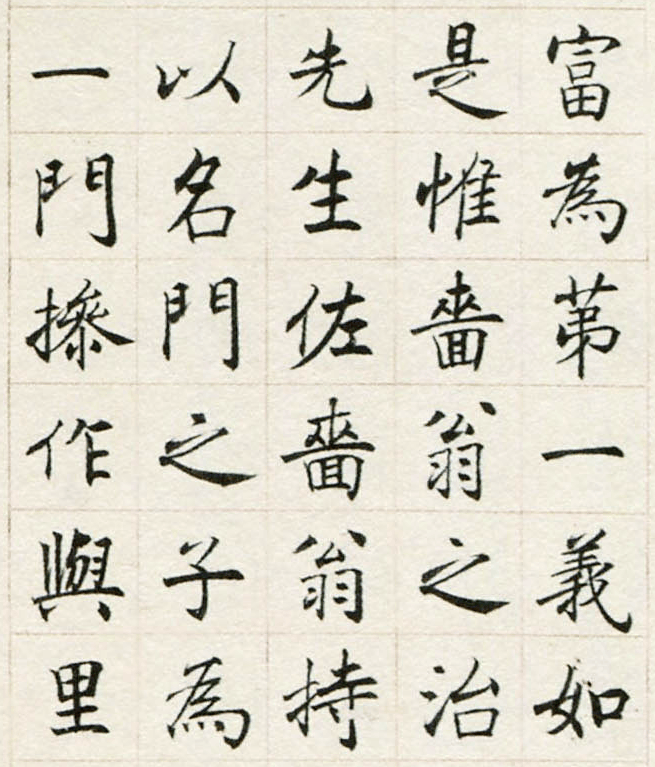 富為苐一義如
是惟嗇翁之治
先生佐嗇翁持
以名門之子為
一門摻作與里